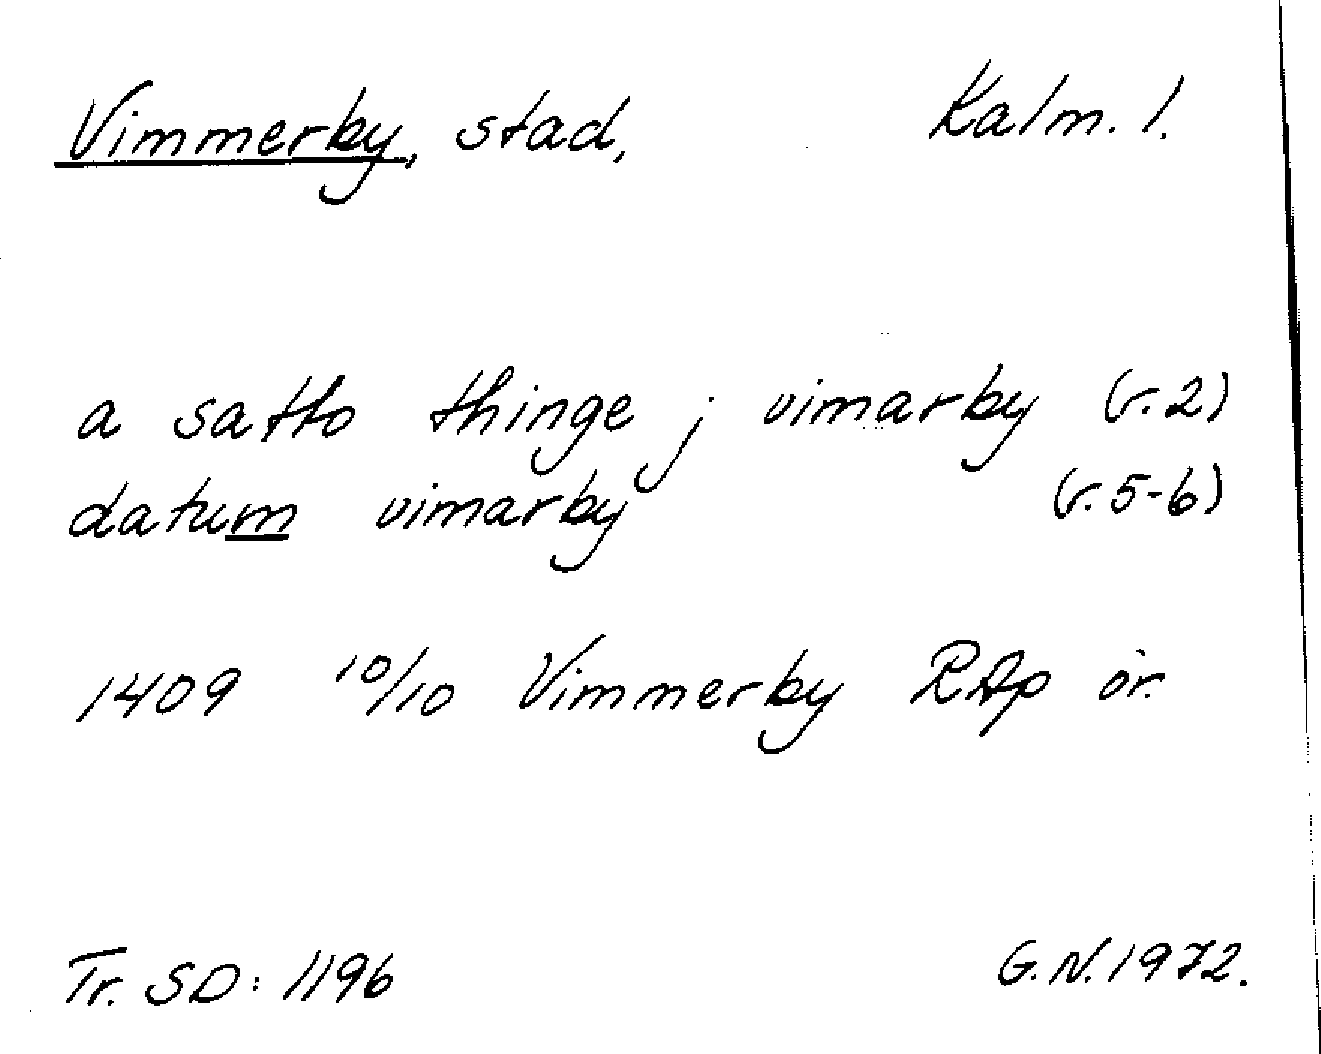 Vimmerby, stad, Kalm. l.
a satto thinge j vimarby (r. 2)
datum vimarby (r. 5-6)
1409 10/10 Vimmerby RAp or.
Tr. SD: 1196 G.N. 1972.